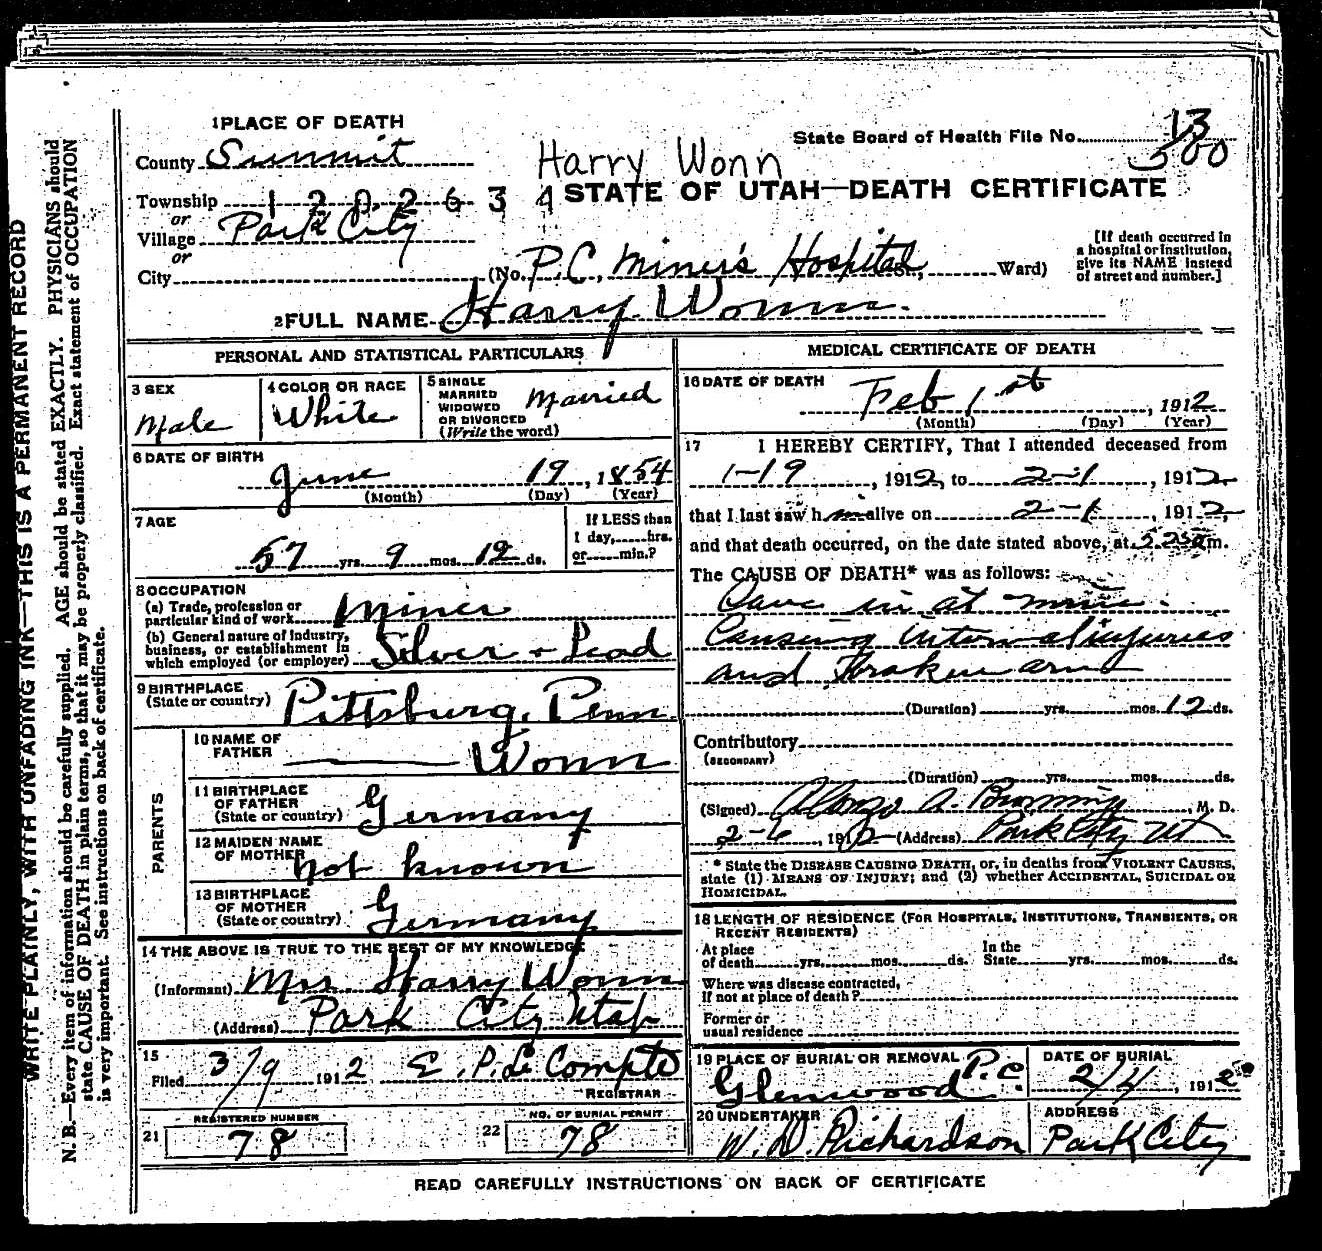 1 PLACE OF DEATH
County Summit
State Board of Health File No. 13
500
Harry Wonn
Township 1202634
STATE OF UTAH—DEATH CERTIFICATE
or
Village Park City
or
City (No. P.C. Miner's Hospital St., Ward)
[If death occurred in a hospital or institution, give its NAME instead of street and number.]
2 FULL NAME Harry Wonn.
PERSONAL AND STATISTICAL PARTICULARS
3 SEX
Male
4 COLOR OR RACE
White
5 SINGLE
MARRIED
WIDOWED
OR DIVORCED
(Write the word)
Married
6 DATE OF BIRTH
June 19, 1854
(Month) (Day) (Year)
7 AGE
57 yrs. 9 mos. 12 ds.
If LESS than
1 day, hrs.
or min.?
8 OCCUPATION
(a) Trade, profession or
particular kind of work Miner
(b) General nature of industry,
business, or establishment in
which employed (or employer) Silver + Lead
9 BIRTHPLACE
(State or country) Pittsburg, Penn.
PARENTS
10 NAME OF
FATHER — Wonn
11 BIRTHPLACE
OF FATHER
(State or country) Germany
12 MAIDEN NAME
OF MOTHER Not known
13 BIRTHPLACE
OF MOTHER
(State or country) Germany
14 THE ABOVE IS TRUE TO THE BEST OF MY KNOWLEDGE
(Informant) Mrs. Harry Wonn
(Address) Park City Utah
15
Filed 3/9 1912 E. P. Le Compte
REGISTRAR
REGISTERED NUMBER
21 78
NO. OF BURIAL PERMIT
22 78
MEDICAL CERTIFICATE OF DEATH
16 DATE OF DEATH
Feb 1st, 1912
(Month) (Day) (Year)
17 I HEREBY CERTIFY, That I attended deceased from
1-19, 1912, to 2-1, 1912,
that I last saw him alive on 2-1, 1912,
and that death occurred, on the date stated above, at m.
The CAUSE OF DEATH* was as follows:
Cave in at mine.
Causing internal injuries
and broken arm
(Duration) yrs. mos. 12 ds.
Contributory
(SECONDARY)
(Duration) yrs. mos. ds.
(Signed) Alonzo A. Browning, M. D.
2-6, 1912 (Address) Park City Ut
* State the DISEASE CAUSING DEATH, or, in deaths from VIOLENT CAUSES,
state (1) MEANS OF INJURY; and (2) whether ACCIDENTAL, SUICIDAL OR
HOMICIDAL.
18 LENGTH OF RESIDENCE (FOR HOSPITALS, INSTITUTIONS, TRANSIENTS, OR
RECENT RESIDENTS)
At place
of death yrs. mos. ds. In the
State yrs. mos. ds.
Where was disease contracted,
If not at place of death?
Former or
usual residence
19 PLACE OF BURIAL OR REMOVAL P.C.
Glenwood
DATE OF BURIAL
2/4, 1912
20 UNDERTAKER
W. D. Richardson
ADDRESS
Park City
READ CAREFULLY INSTRUCTIONS ON BACK OF CERTIFICATE
WRITE PLAINLY, WITH UNFADING INK—THIS IS A PERMANENT RECORD
N. B.—Every item of information should be carefully supplied. AGE should be stated EXACTLY. PHYSICIANS should
state CAUSE OF DEATH in plain terms, so that it may be properly classified. Exact statement of OCCUPATION
is very important. See instructions on back of certificate.